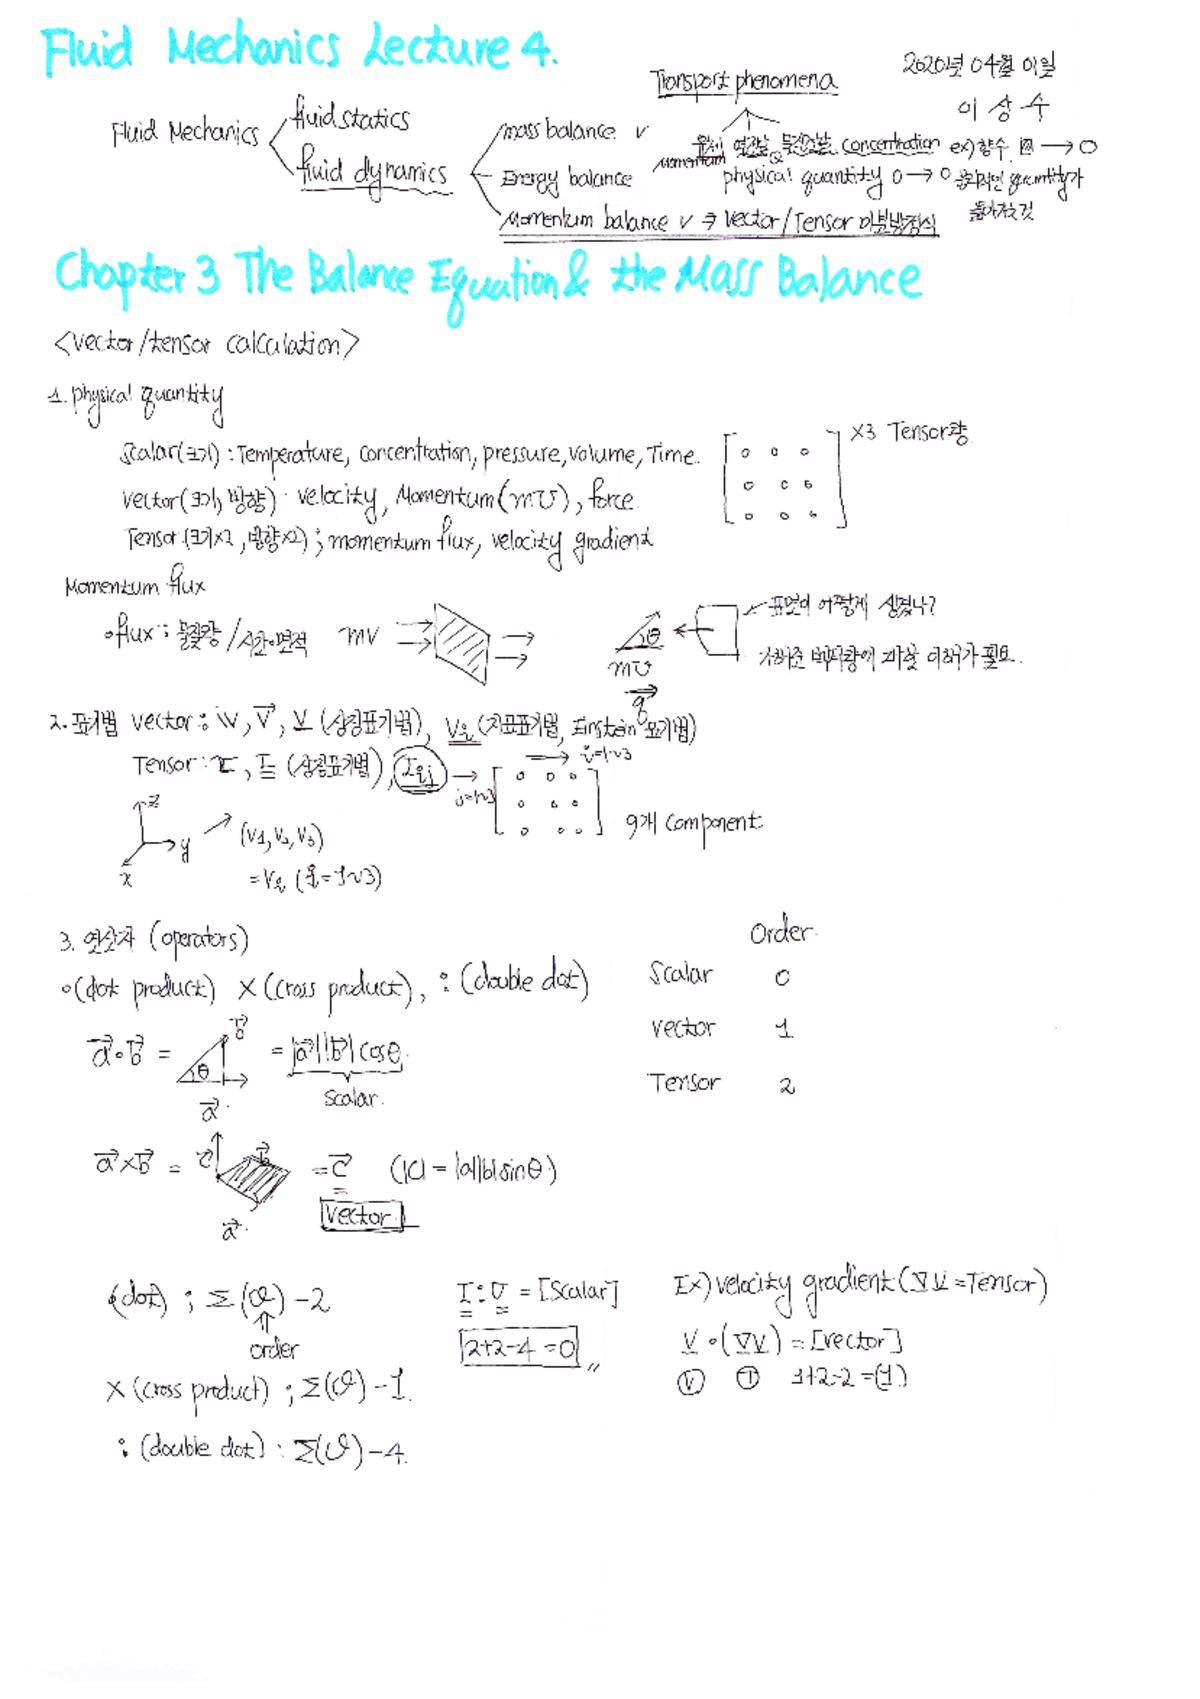 Fluid Mechanics Lecture 4.
2020년 04월 01일
이상수
Transport phenomena
Fluid Mechanics
fluid statics
fluid dynamics
mass balance v
Energy balance
Momentum balance v ⇒ Vector/Tensor 미분방정식
Momentum
concentration ex) 향수 → O
physical quantity O → O quantity가
Chapter 3 The Balance Equation & the Mass Balance
<vector/tensor calculation>
1. physical quantity
Scalar(크기) : Temperature, concentration, pressure, volume, Time.
×3 Tensor량
vector(크기, 방향) : velocity, Momentum(mv), force
Tensor(크기×2, 방향×2) ; momentum flux, velocity gradient
Momentum flux
∘flux : 물질량/시간·면적
mv
θ
mv
표면이 어떻게 생겼나?
이해가 필요.
2. 표기법 vector : 𝕍, V⃗, V̲ (상징표기법), Vᵢ (지표표기법, Einstein 표기법)
Tensor : τ, τ̳ (상징표기법), τᵢⱼ → i=1~3
j=1~3
9개 component
z
y
x
(V1, V2, V3)
= Vᵢ (i=1~3)
3. 연산자 (operators)
Order
∘(dot product) × (cross product), : (double dot)
Scalar 0
vector 1
Tensor 2
a⃗∘b⃗ = b⃗ θ a⃗ = |a⃗||b⃗|cosθ
Scalar.
a⃗×b⃗ = c⃗ b⃗ a⃗ = c⃗ (|c| = |a||b|sinθ)
Vector
(dot) ; Σ(σ) - 2
order
× (cross product) ; Σ(σ) - 1.
: (double dot) : Σ(σ) - 4.
τ̳ : σ̳ = [Scalar]
2+2-4 = 0 〃
Ex) velocity gradient (∇V = Tensor)
V∘(∇V) = [vector]
Ⓥ Ⓣ 1+2-2 = (1)